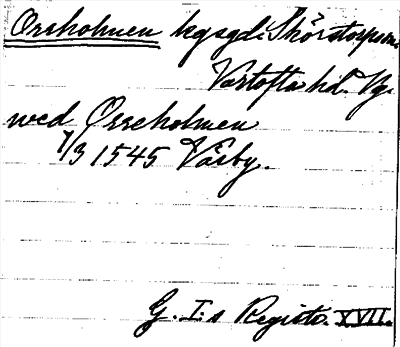 Orrholmen kgsgd. Skörstorps sn.
Vartofta hd. Vg.
wed Orreholmen
7/3 1545 Väsby.
G. I:s Registr. XVII.